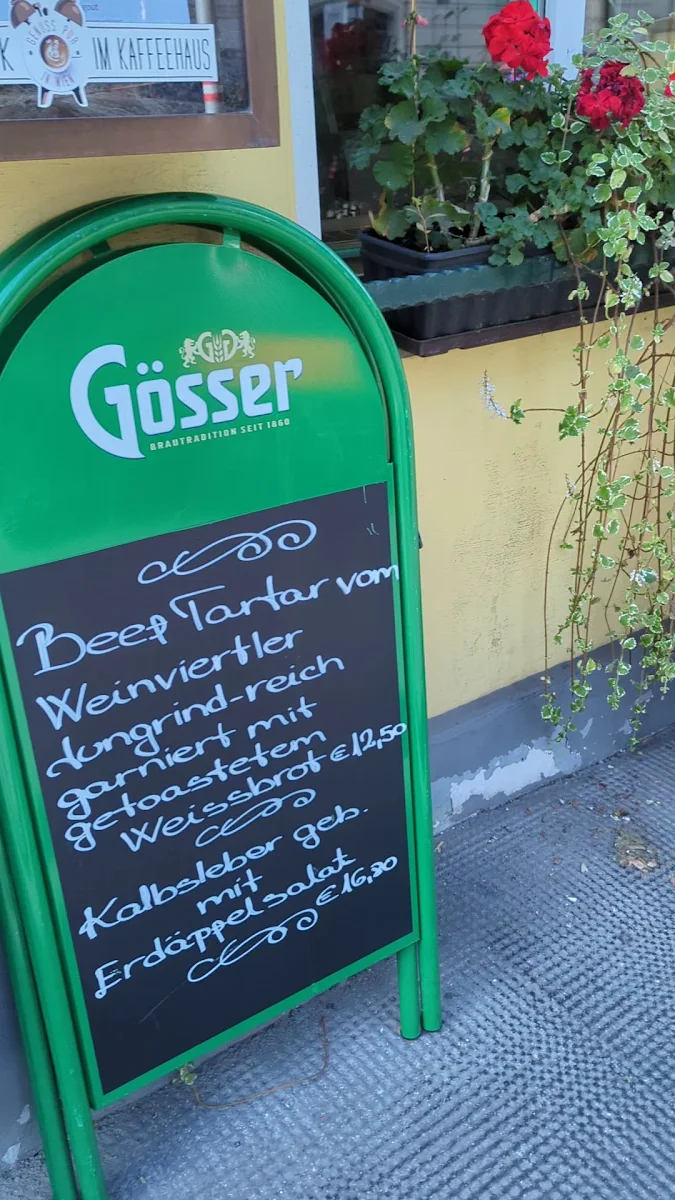 K
GENUSS PUR
IN WIEN
IM KAFFEEHAUS
GG
Gösser
BRAUTRADITION SEIT 1860
Beef Tartar vom
Weinviertler
Jungrind-reich
garniert mit
getoastetem
Weissbrot € 12,50
Kalbsleber geb.
mit
Erdäppelsalat
€ 16,80